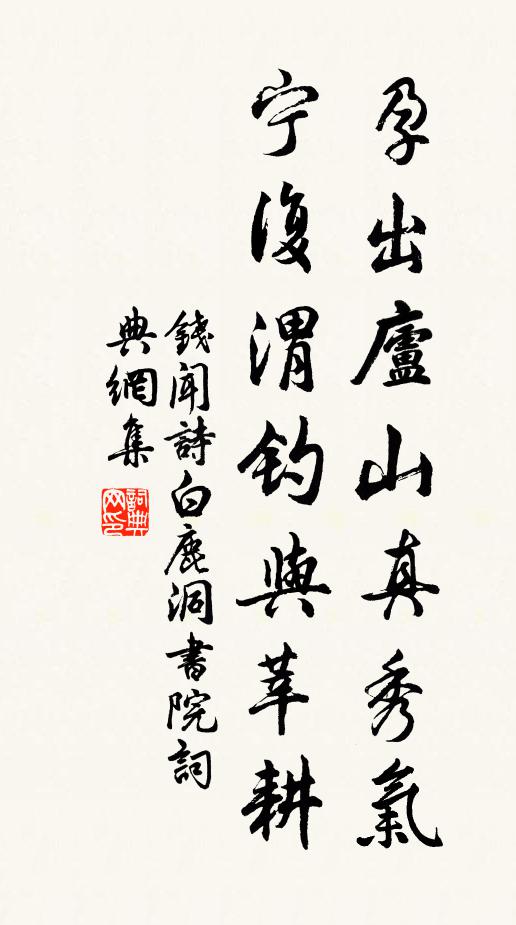 孕出廬山真秀氣
宁復渭钓與莘耕
錢聞詩白鹿洞書院詞
典網集
詞典网印